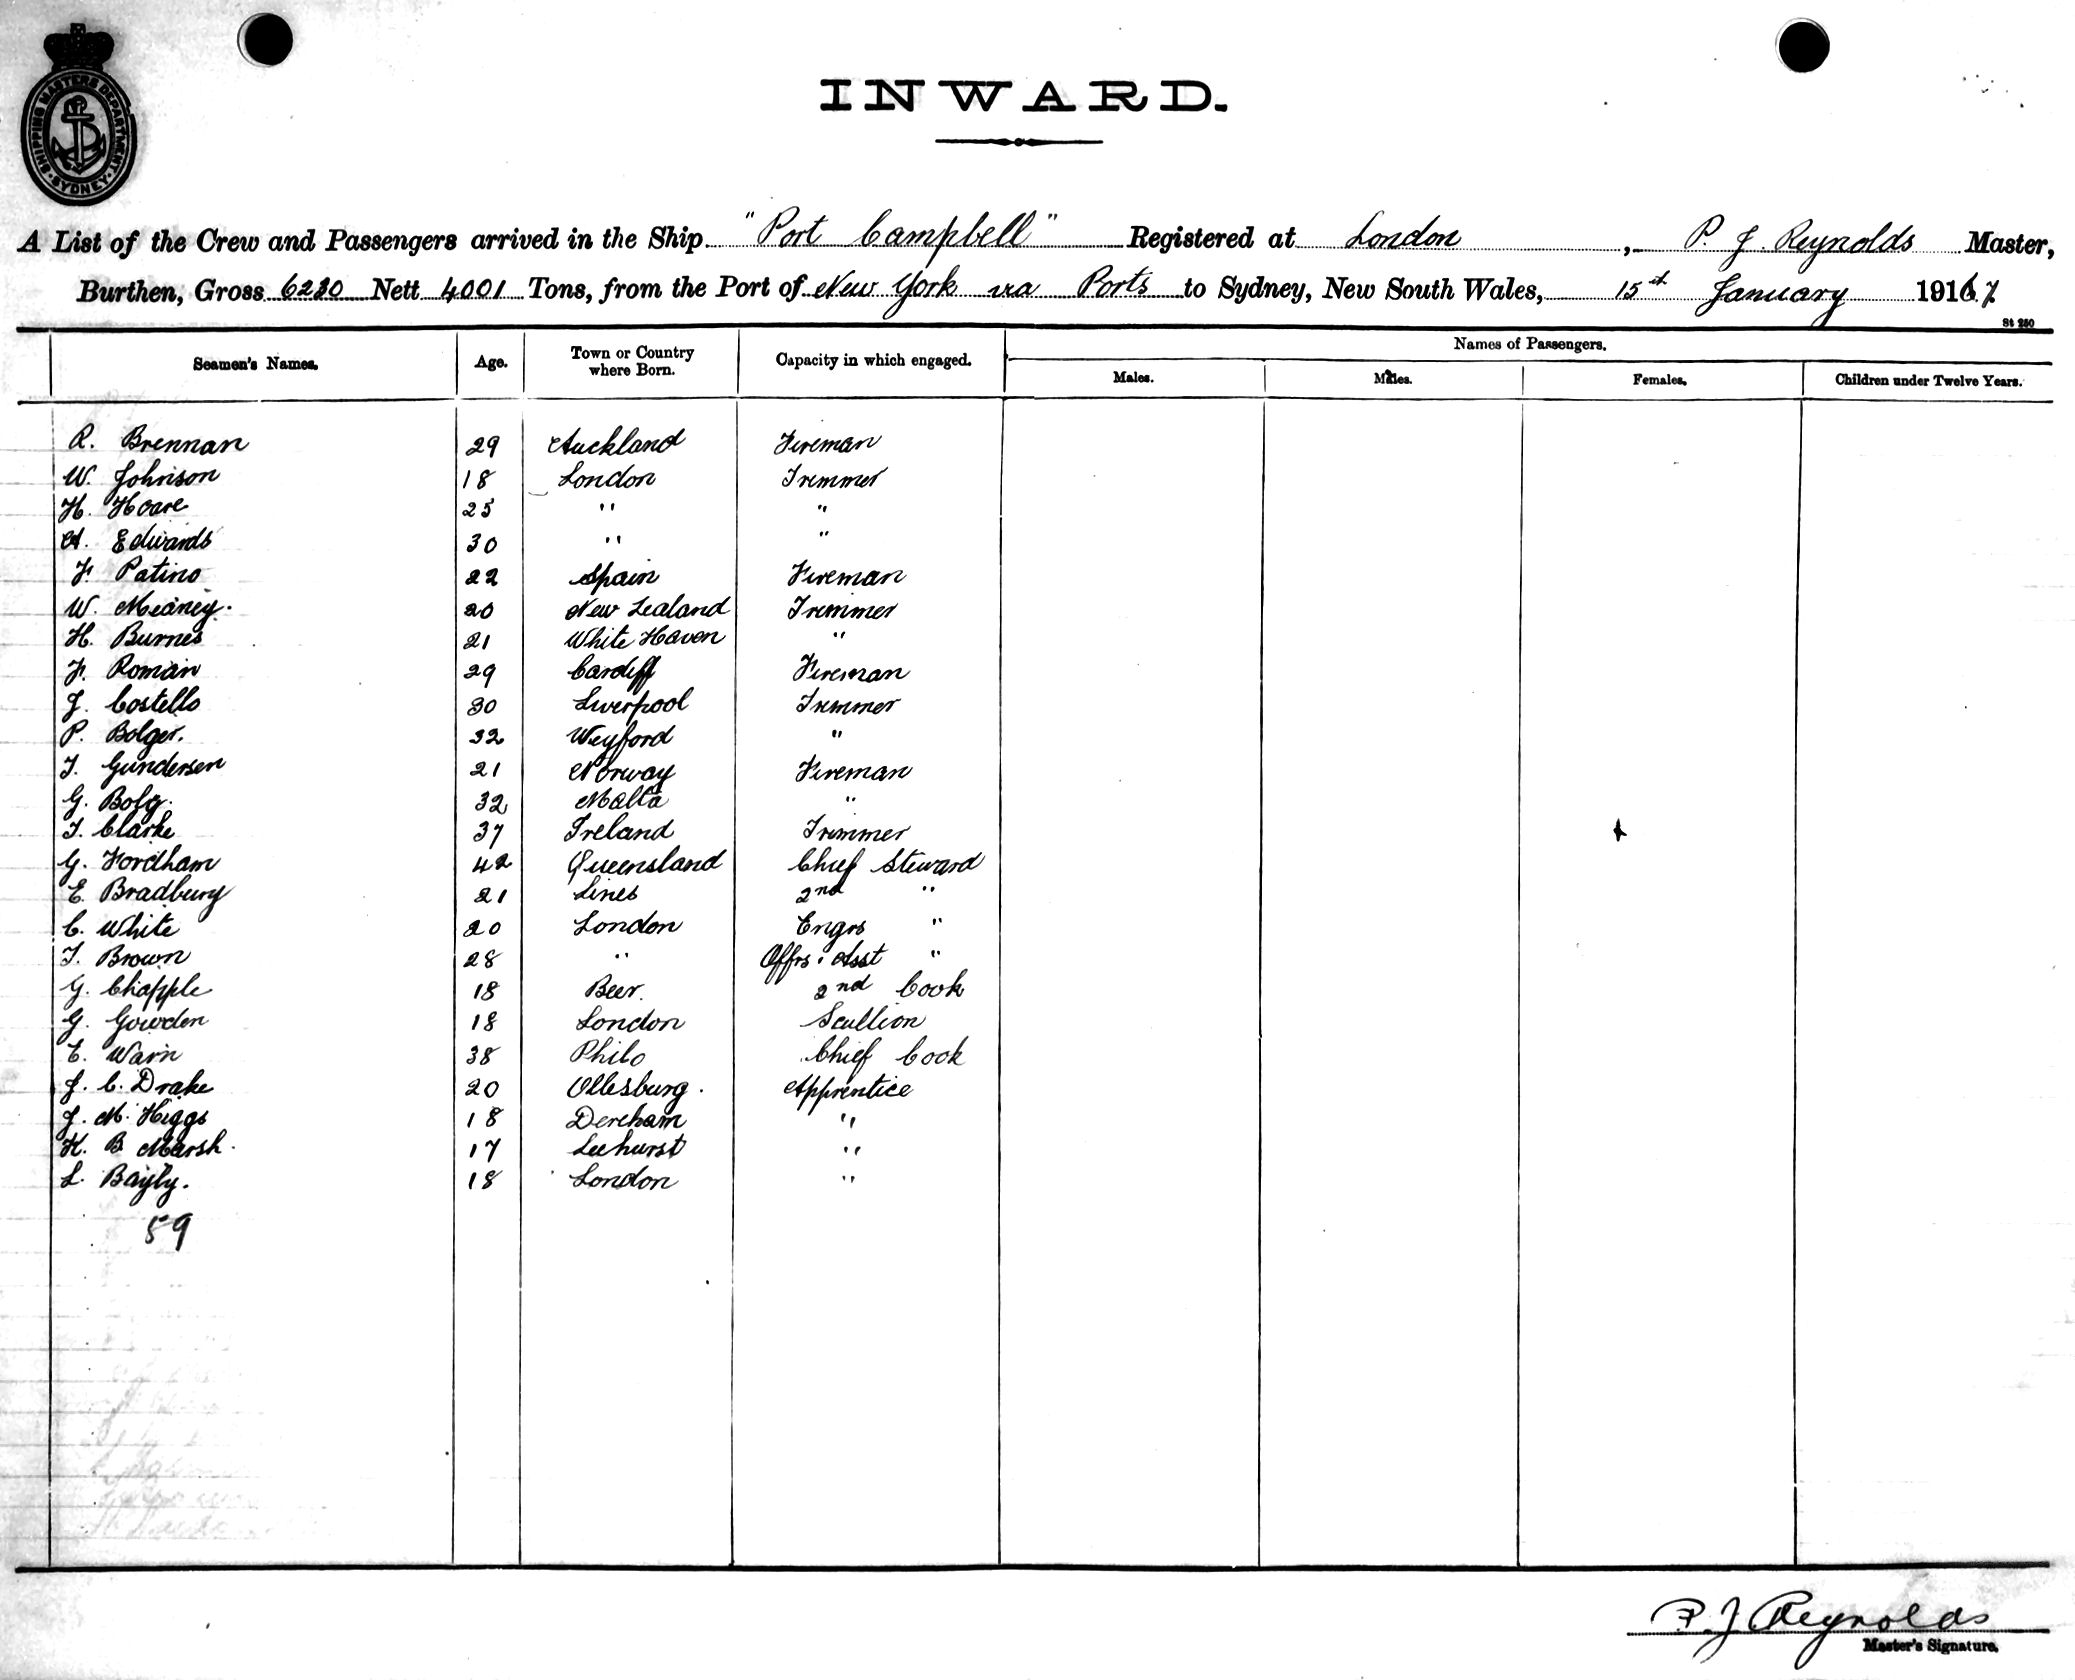 SHIPPING MASTERS DEPARTMENT · SYDNEY ·
INWARD.
A List of the Crew and Passengers arrived in the Ship "Port Campbell" Registered at London, P. J. Reynolds Master,
Burthen, Gross 6230 Nett 4001 Tons, from the Port of New York via Ports to Sydney, New South Wales, 15th January 1916 7
St 250
Seamen's Names. Age. Town or Country where Born. Capacity in which engaged. Names of Passengers.
Males. Males. Females. Children under Twelve Years.
R. Brennan 29 Auckland Fireman
W. Johnson 18 London Trimmer
H. Hoare 25 " "
A. Edwards 30 " "
F. Patino 22 Spain Fireman
W. Meaney. 20 New Zealand Trimmer
H. Burnes 21 White Haven "
F. Roman 29 Cardiff Fireman
J. Costello 30 Liverpool Trimmer
P. Bolger. 32 Wexford "
T. Gundersen 21 Norway Fireman
G. 32 Malta "
T. Clarke 37 Ireland Trimmer
G. Fordham 42 Queensland Chief Steward
E. Bradbury 21 Lines 2nd "
C. White 20 London Engrs "
T. Brown 28 " Offrs: Asst "
G. Chapple 18 Beer. 2nd Cook
G. Gowden 18 London Scullion
E. Warn 38 Phila Chief Cook
J. C. Drake 20 Apprentice
J. M. Higgs 18 Dereham "
H. B. Marsh. 17 Leehurst "
L. Bayly. 18 London "
59
P. J. Reynolds
Master's Signature.